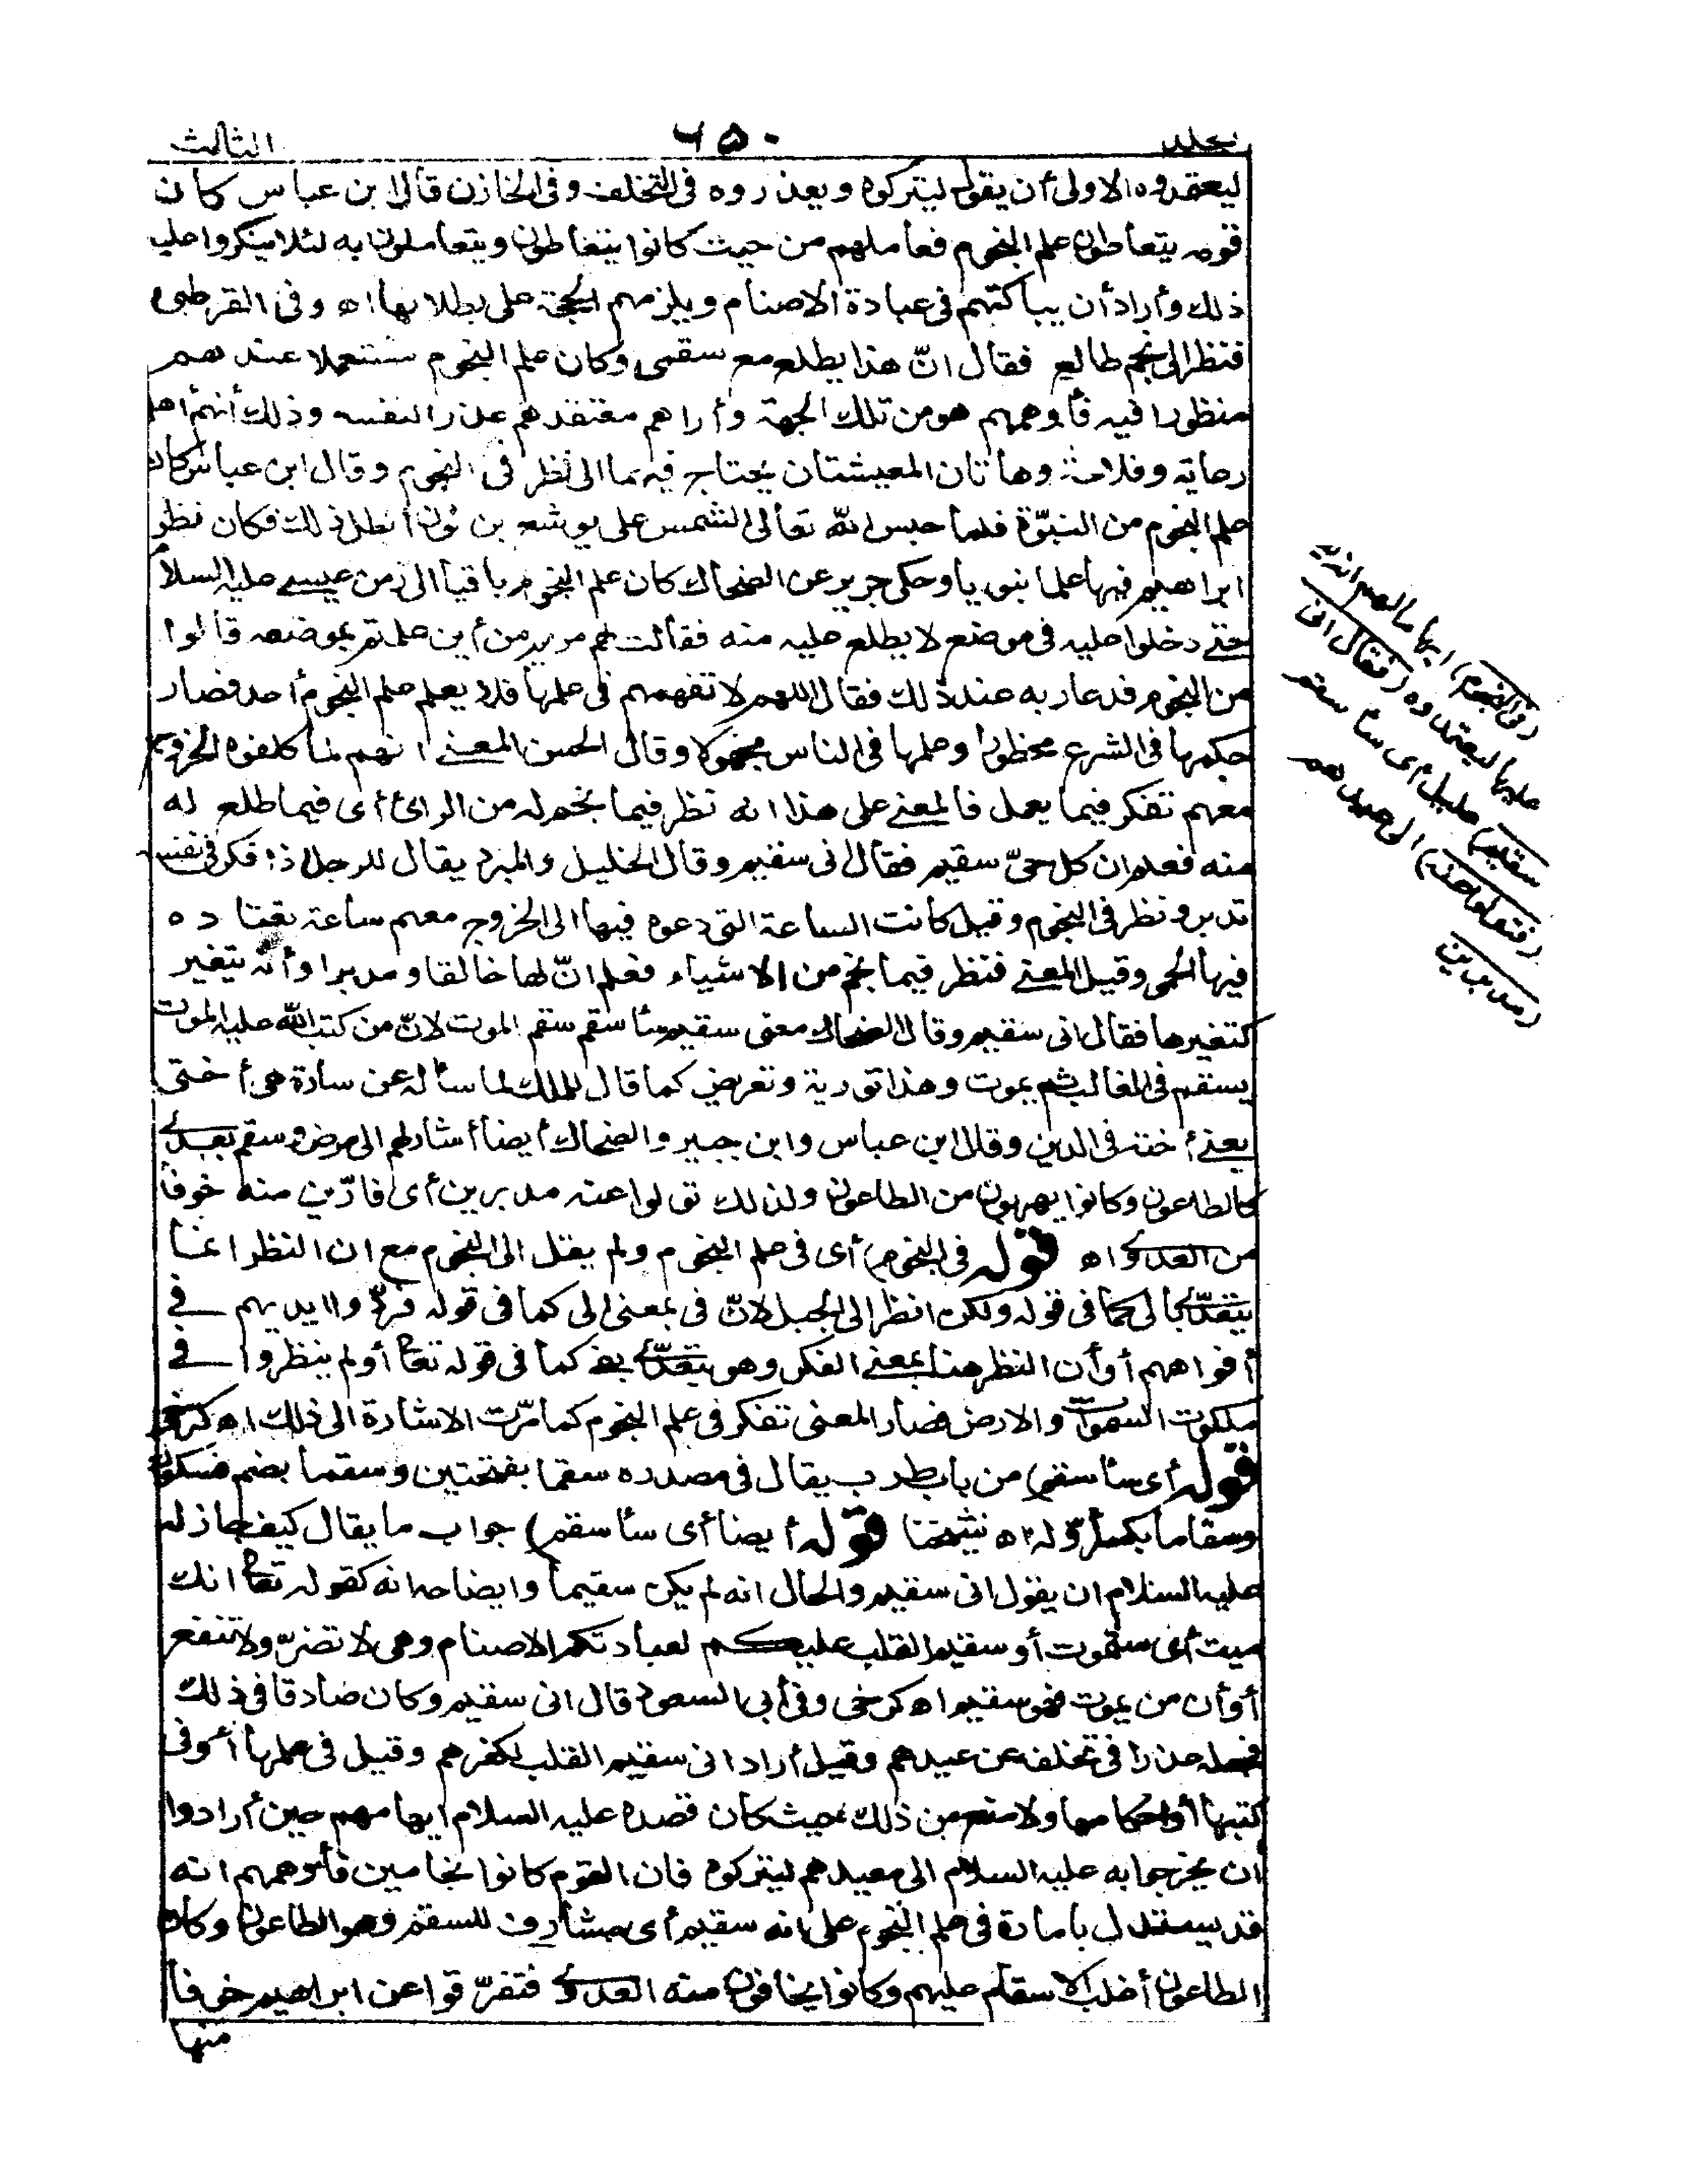 بجلد ٦٥٠ الثالث
ليعتقدوه الاولى أن يقول ليتركوه ويعذروه فى التخلف وفى الخازن قال ابن عباس كان
قومه يتعاطون علم النجوم فعاملهم من حيث كانوا يتعاطون ويتعاملون به لئلا ينكروا عليه
ذلك وأراد أن يباكتهم فى عبادة الاصنام ويلزمهم الحجة على بطلانها اه وفى القرطبى
فنظر الى نجم طالع فقال انّ هذا يطلع مع سقمى وكان علم النجوم مستعملا عندهم
منظورا فيه فأوهمهم هو من تلك الجهة وأراهم معتقدهم عذرا لنفسه وذلك أنهم أهل
رعاية وفلاحة وهاتان المعيشتان يحتاج فيهما الى نظر فى النجوم وقال ابن عباس كان
علم النجوم من النبوّة فلما حبس الله تعالى الشمس على يوشع بن نون أبطل ذلك فكان نظر
ابراهيم فيها علما نبويا وحكى جرير عن الضحاك كان علم النجوم باقيا الى زمن عيسى عليه السلام
حتى دخلوا عليه فى موضع لا يطلع عليه منه فقالت لهم مريم من أين علمتم بموضعه قالوا
من النجوم فدعا ربه عند ذلك فقال اللهم لا تفهمهم فى علمها فلا يعلم علم النجوم أحد فصار
حكمها فى الشرع محظورا وعلمها فى الناس مجهولا وقال الحسن المعنى انهم لما كلفوه الخروج
معهم تفكر فيما يعمل فالمعنى على هذا انه نظر فيما نجم له من الرائ أى فيما طلع له
منه فعلم ان كل حىّ سقيم فقال انى سقيم وقال الخليل والمبرد يقال للرجل اذا فكر فى نفسه
تدبر ونظر فى النجوم وقيل كانت الساعة التى دعوه فيها الى الخروج معهم ساعة تعتاده
فيها الحمى وقيل المعنى فنظر فيما نجم من الاشياء فعلم انّ لها خالقا ومدبرا وأنه يتغير
كتغيرها فقال انى سقيم وقال الضحاك معنى سقيم سأسقم سقم الموت لانّ من كتب الله عليه الموت
يسقم فى الغالب ثم يموت وهذا تورية وتعريض كما قال للملك لما سأله عن سارة هى أختى
يعنى أخته فى الدين وقال ابن عباس وابن جبير والضحاك أيضا أشار لهم الى مرض وسقم يعدى
كالطاعون وكانوا يهربون من الطاعون ولذلك تولوا عنه مدبرين أى فارّين منه خوفا
من العدوى اه قوله فى النجوم) أى فى علم النجوم ولم يقل الى النجوم مع ان النظر انما
يتعدّى بالى كما فى قوله ولكن انظر الى الجبل لانّ فى بمعنى الى كما فى قوله فردّوا أيديهم فى
أفواههم أو أن النظر هنا بمعنى الفكر وهو يتعدّى بفى كما فى قوله تعالى أولم ينظروا فى
ملكوت السموات والارض فصار المعنى تفكر فى علم النجوم كما مرّت الاشارة الى ذلك اه كرخى
قوله أى سأسقم) من باب طرب يقال فى مصدره سقما بفتحتين وسقما بضم فسكون
وسقاما بكسر أوّله اه شيخنا قوله أيضا أى سأسقم) جواب ما يقال كيف جاز له
عليه السلام ان يقول انى سقيم والحال انه لم يكن سقيما وايضاحه انه كقوله تعالى انك
ميت أى ستموت أو سقيم القلب عليكم لعبادتكم الاصنام وهى لا تضرّ ولا تنفع
أو أن من يموت فهو سقيم اه كرخى وفى أبى السعود قال انى سقيم وكان صادقا فى ذلك
فجعله عذرا فى تخلفه عن عيدهم وقيل أراد انى سقيم القلب لكفرهم وقيل فى علمها أو فى
كتبها أو أحكامها ولا منع من ذلك بحيث كان قصده عليه السلام ايهامهم حين أرادوا
أن يخرجوا به عليه السلام الى معيدهم ليتركوه فان القوم كانوا نجامين فأوهمهم انه
قد يستدل بأمارة فى علم النجوم على انه سقيم أى مشارف للسقم وهو الطاعون وكان
الطاعون أغلب الاسقام عليهم وكانوا يخافون منه العدوى فتفرّقوا عن ابراهيم خوفا
منها
(فى النجوم) ايهاما لهم انه
عليها ليعتمدوه (فقال انى
سقيم) عليل أى سأسقم
(فتولوا عنه) الى عيدهم
(مدبرين